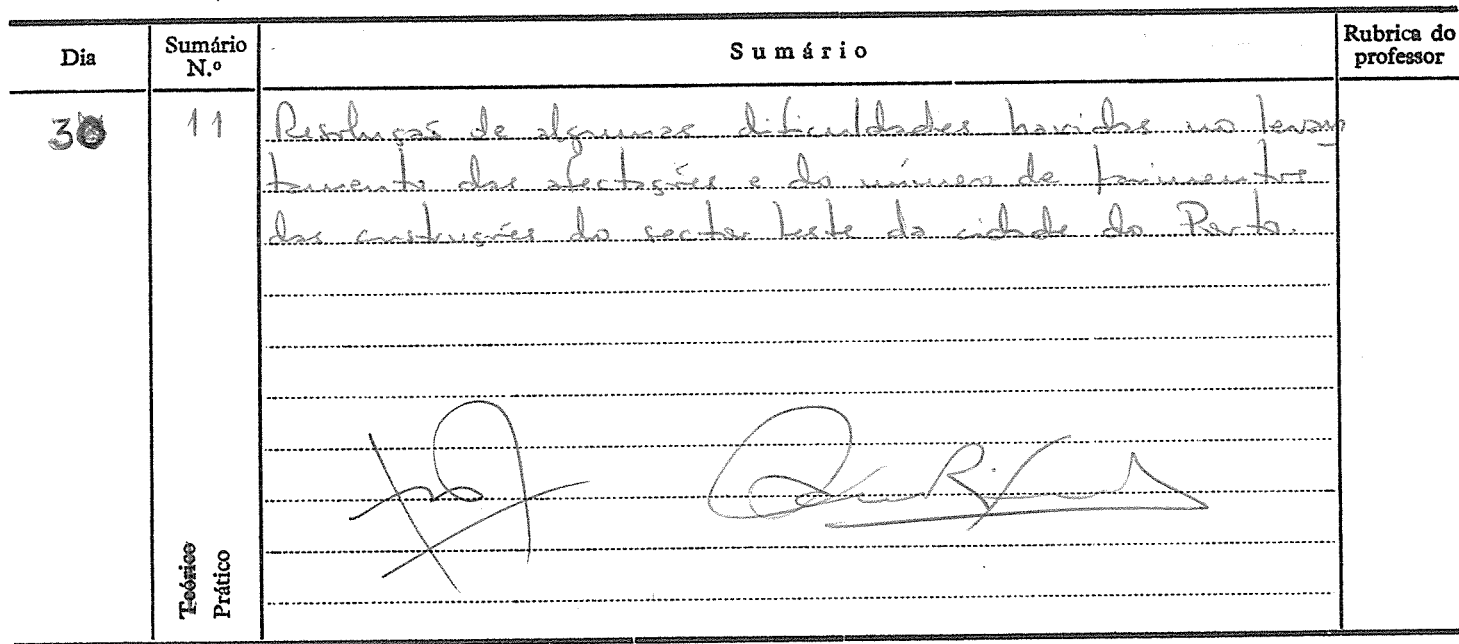 Dia Sumário N.º Sumário Rubrica do professor
30 11 Resolução de algumas dificuldades havidas no levan
tamento das afectações e do número de pavimentos
das construções do sector teste da cidade do Porto.
Teórico
Prático